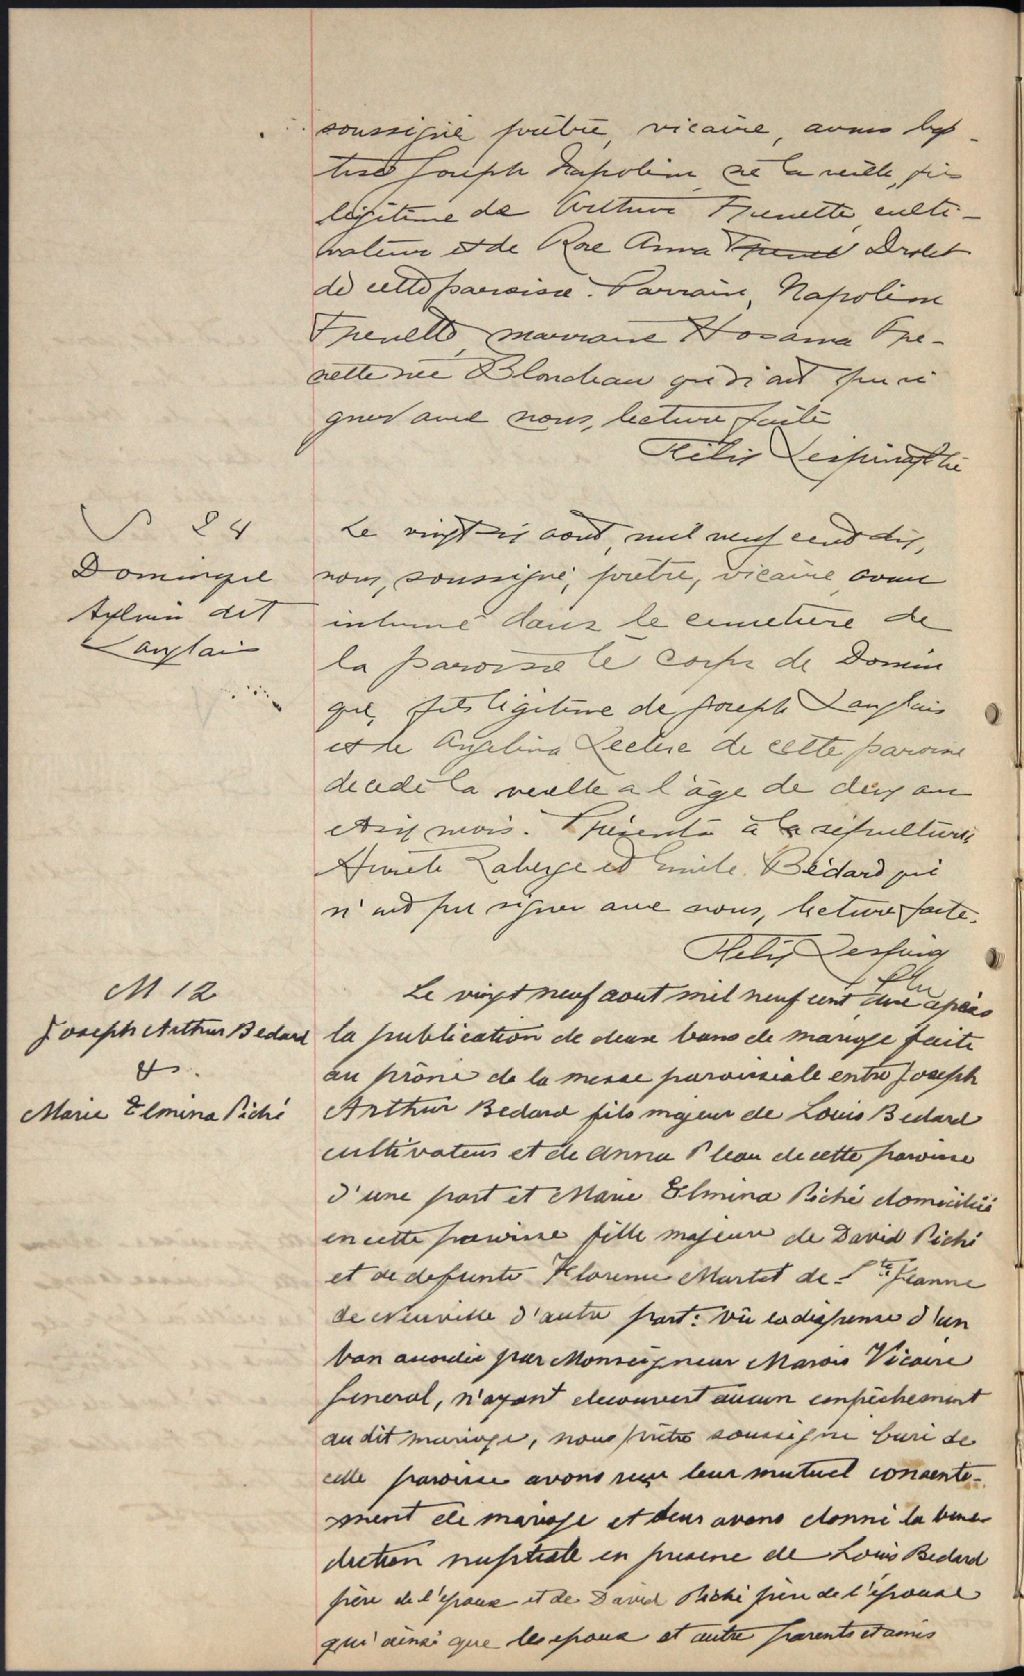 soussigné prêtre, vicaire, avons bap-
tisé Joseph Napoléon né la veille, fils
légitime de Arthur Frenette, culti-
vateur et de Rose Anna Drolet
de cette paroisse. Parrain, Napoléon
Frenette, marraine Hosanna Fre-
nette née Blondeau qui n'ont pu si
gner avec nous, lecture faite
Félix
S 24
Dominique
Sylvain dit
Langlais
Le vingt-six août, mil neuf cent dix,
nous, soussigné, prêtre, vicaire avons
inhumé dans le cimetière de
la paroisse le corps de Domini
que, fils légitime de Joseph Langlais
et de Angelina Leclerc de cette paroisse
décédé la veille a l'âge de deux ans
et six mois. Présents à la sépulture
Laberge et Emile Bédard qui
n'ont pu signer avec nous, lecture faite.
Félix
M 12
Joseph Arthur Bedard
&
Marie Elmina Piché
Le vingt neuf aout mil neuf cent dix après
la publication de deux bans de mariage faite
au prône de la messe paroissiale entre Joseph
Arthur Bedard fils majeur de Louis Bedard
cultivateur et de Anna Pleau de cette paroisse
d'une part et Marie Elmina Piché domiciliée
en cette paroisse fille majeure de David Piché
et de defunte Florence Martet de Ste Jeanne
de Neuville d'autre part: vû la dispense d'un
ban accordée par Monseigneur Marois Vicaire
General, n'ayant decouvert aucun empêchement
au dit mariage, nous prêtre soussigné Curé de
cette paroisse avons reçu leur mutuel consente-
ment de mariage et leur avons donné la béné
diction nuptiale en presence de Louis Bedard
père de l'époux et de David Piché père de l'épouse
qui ainsi que les epoux et autre parents et amis